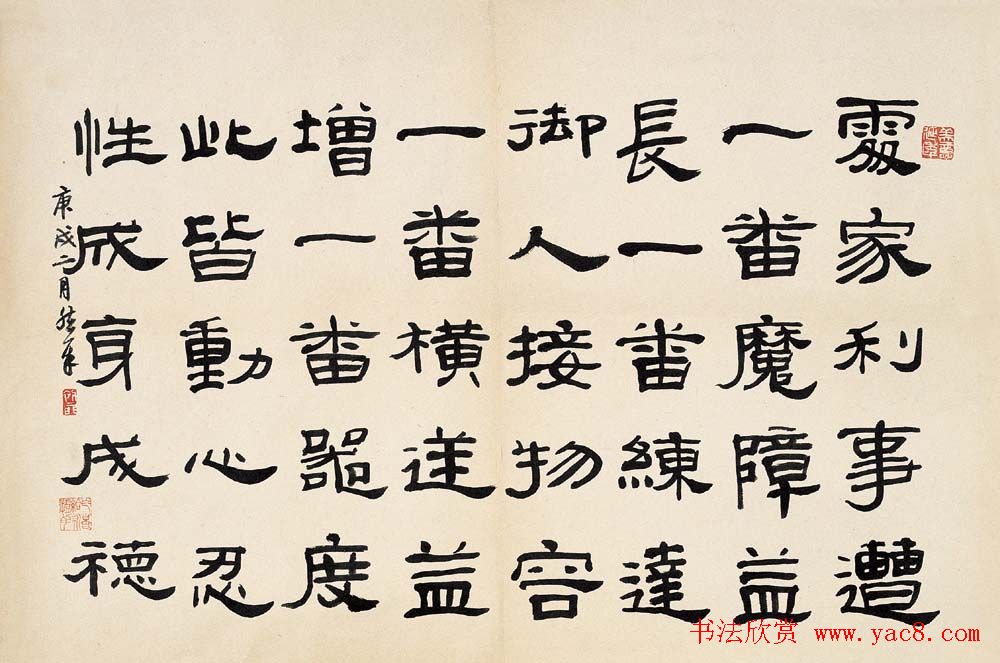 處家利事遭
一番魔障益
長一番練達
御人接物容
一番横逆益
增一番器度
此皆動心忍
性成身成德
庚戌二月
书法欣赏 www.yac8.com